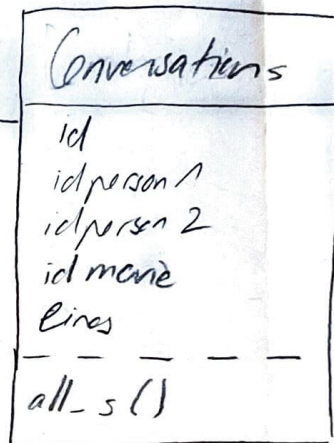 Conversations
id
idperson1
idperson2
idmovie
lines
all_s()